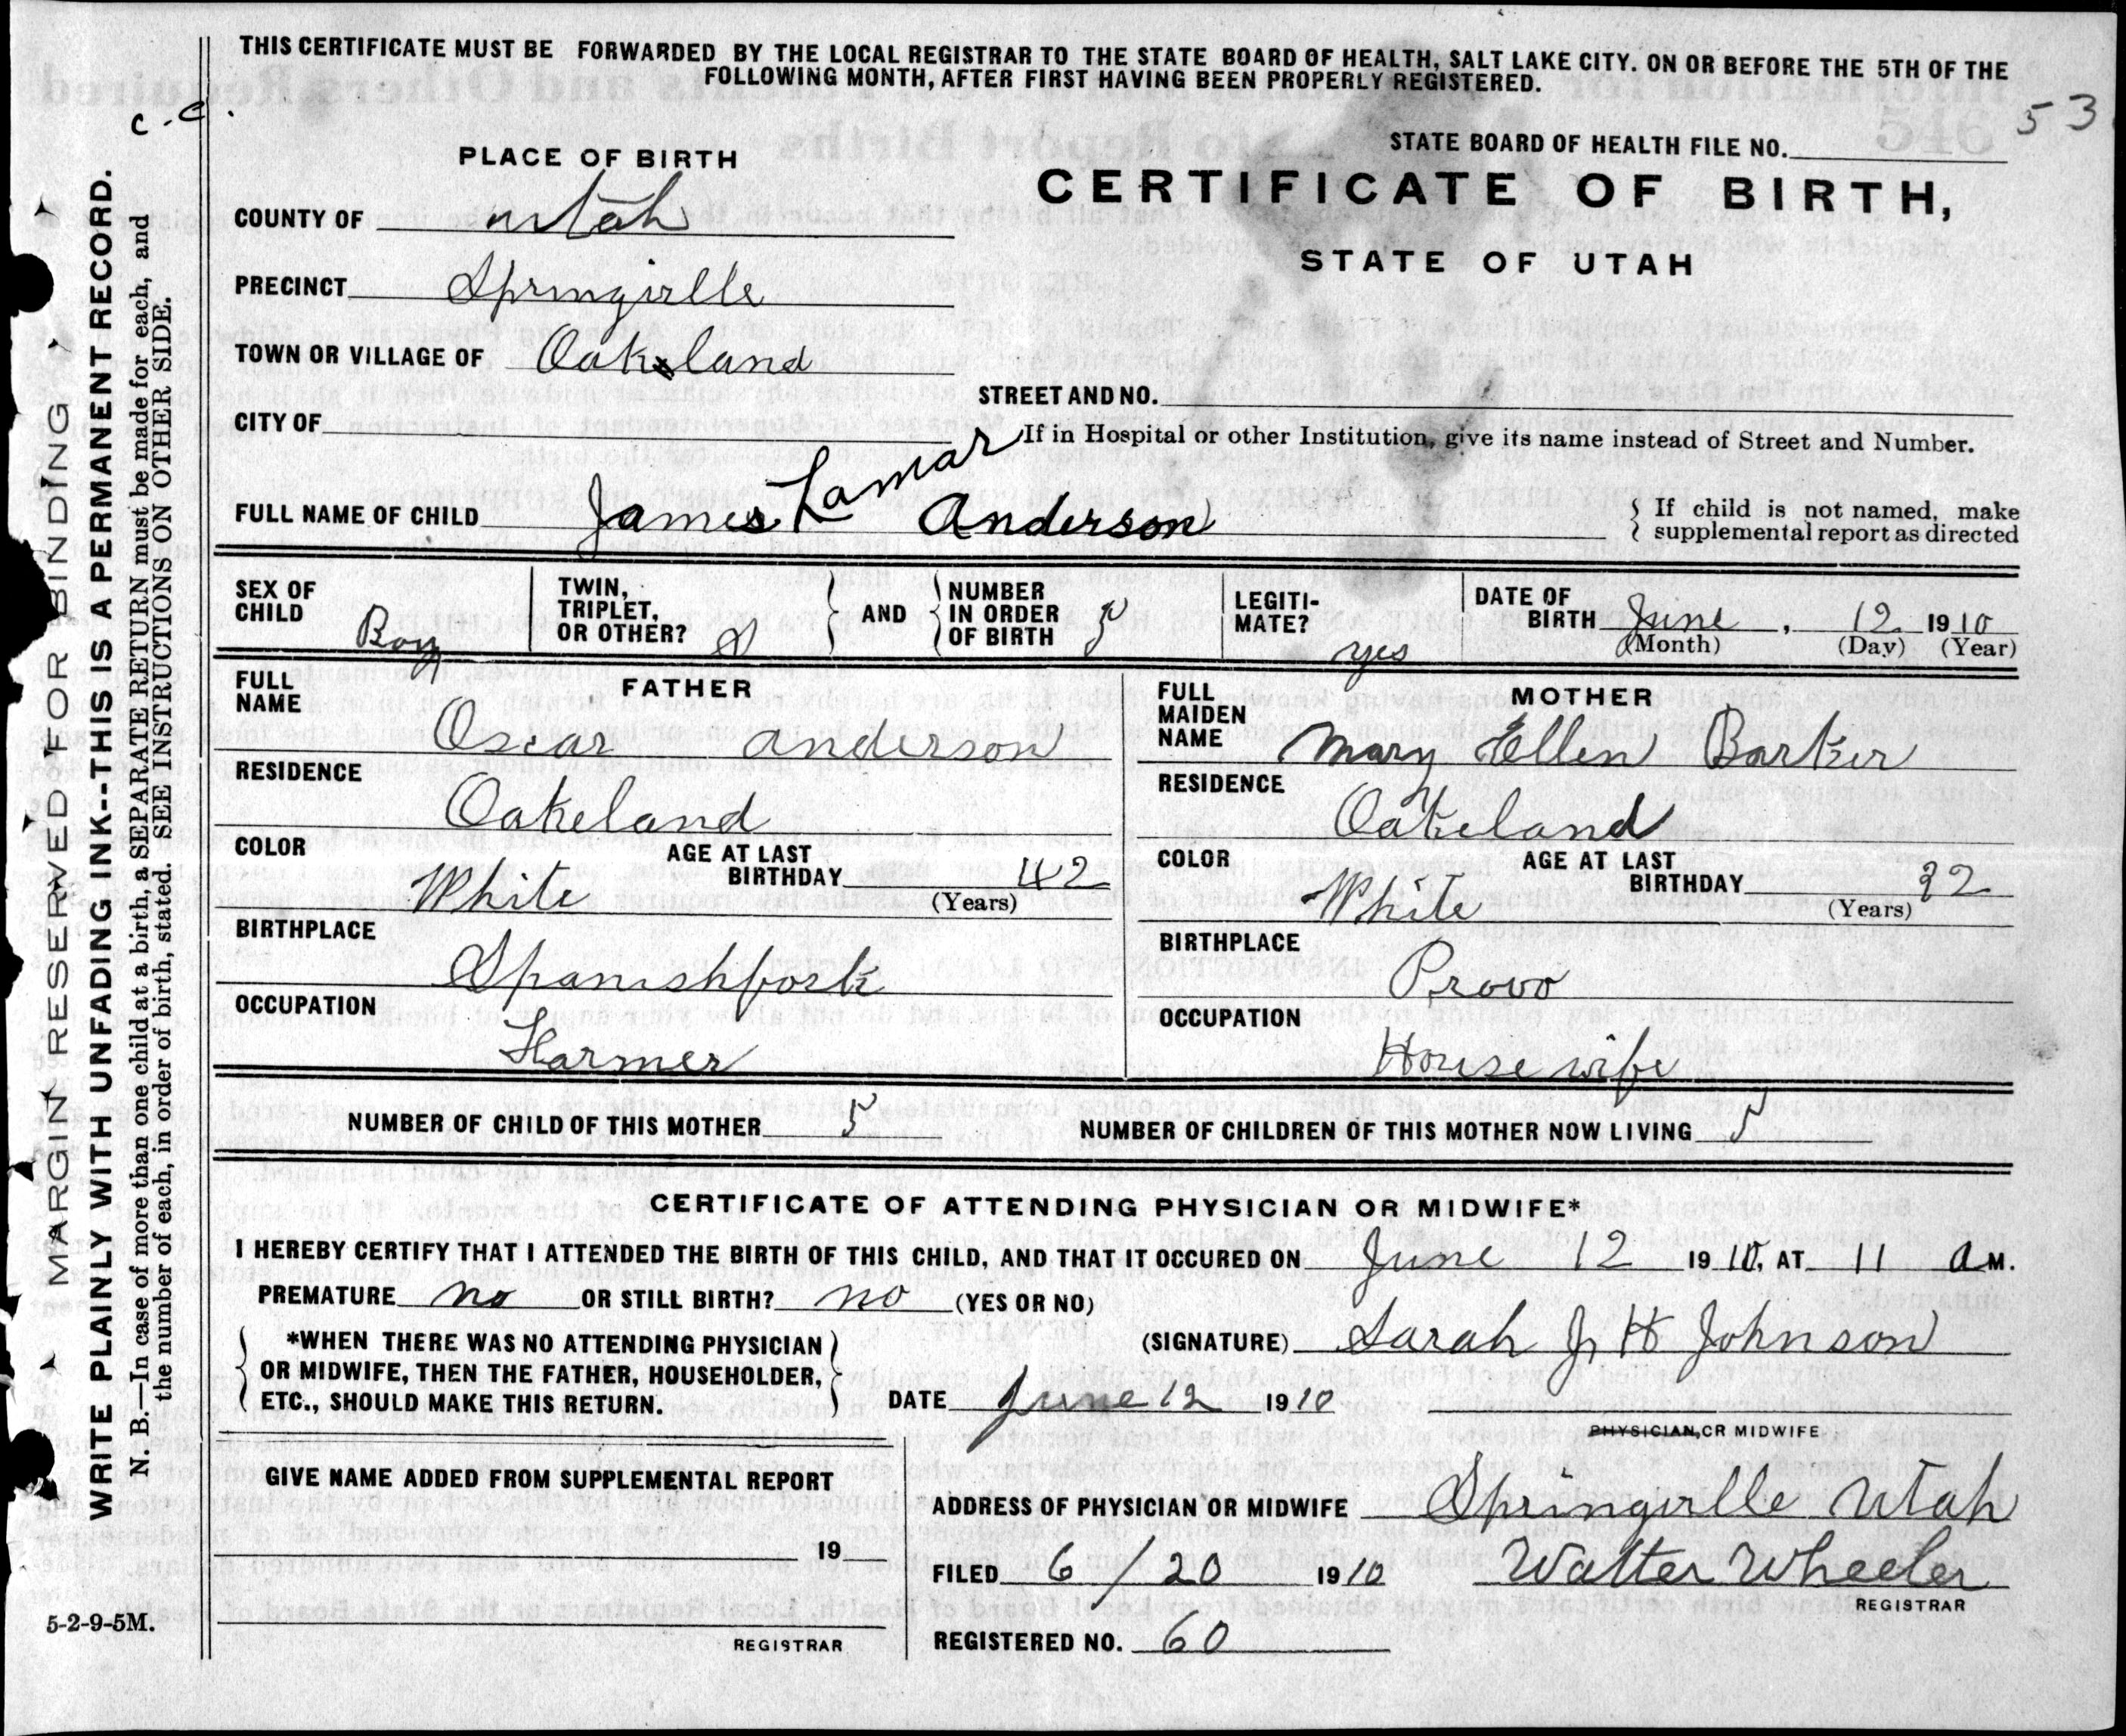 THIS CERTIFICATE MUST BE FORWARDED BY THE LOCAL REGISTRAR TO THE STATE BOARD OF HEALTH, SALT LAKE CITY. ON OR BEFORE THE 5TH OF THE
FOLLOWING MONTH, AFTER FIRST HAVING BEEN PROPERLY REGISTERED.
c.c.
53
STATE BOARD OF HEALTH FILE NO.
PLACE OF BIRTH
CERTIFICATE OF BIRTH,
STATE OF UTAH
COUNTY OF Utah
PRECINCT Springville
TOWN OR VILLAGE OF Oakland
STREET AND NO.
CITY OF
If in Hospital or other Institution, give its name instead of Street and Number.
FULL NAME OF CHILD James Lamar Anderson
If child is not named, make
supplemental report as directed
SEX OF CHILD Boy
TWIN, TRIPLET, OR OTHER?
AND
NUMBER IN ORDER OF BIRTH 5
LEGITI-MATE? yes
DATE OF BIRTH June, 12 1910
(Month) (Day) (Year)
FATHER
FULL NAME Oscar Anderson
RESIDENCE Oakeland
COLOR White
AGE AT LAST BIRTHDAY 42
(Years)
BIRTHPLACE Spanishfork
OCCUPATION Farmer
MOTHER
FULL MAIDEN NAME Mary Ellen Barker
RESIDENCE Oakeland
COLOR White
AGE AT LAST BIRTHDAY 32
(Years)
BIRTHPLACE Provo
OCCUPATION House wife
NUMBER OF CHILD OF THIS MOTHER 5
NUMBER OF CHILDREN OF THIS MOTHER NOW LIVING 5
CERTIFICATE OF ATTENDING PHYSICIAN OR MIDWIFE*
I HEREBY CERTIFY THAT I ATTENDED THE BIRTH OF THIS CHILD, AND THAT IT OCCURED ON June 12 1910, AT 11 a M.
PREMATURE no OR STILL BIRTH? no (YES OR NO)
*WHEN THERE WAS NO ATTENDING PHYSICIAN
OR MIDWIFE, THEN THE FATHER, HOUSEHOLDER,
ETC., SHOULD MAKE THIS RETURN.
(SIGNATURE) Sarah J H Johnson
DATE June 12 1910
PHYSICIAN, OR MIDWIFE
GIVE NAME ADDED FROM SUPPLEMENTAL REPORT
19
REGISTRAR
ADDRESS OF PHYSICIAN OR MIDWIFE Springville Utah
FILED 6/20 1910 Walter Wheeler
REGISTRAR
REGISTERED NO. 60
5-2-9-5M.
MARGIN RESERVED FOR BINDING
WRITE PLAINLY WITH UNFADING INK--THIS IS A PERMANENT RECORD.
N. B.—In case of more than one child at a birth, a SEPARATE RETURN must be made for each, and
the number of each, in order of birth, stated. SEE INSTRUCTIONS ON OTHER SIDE.